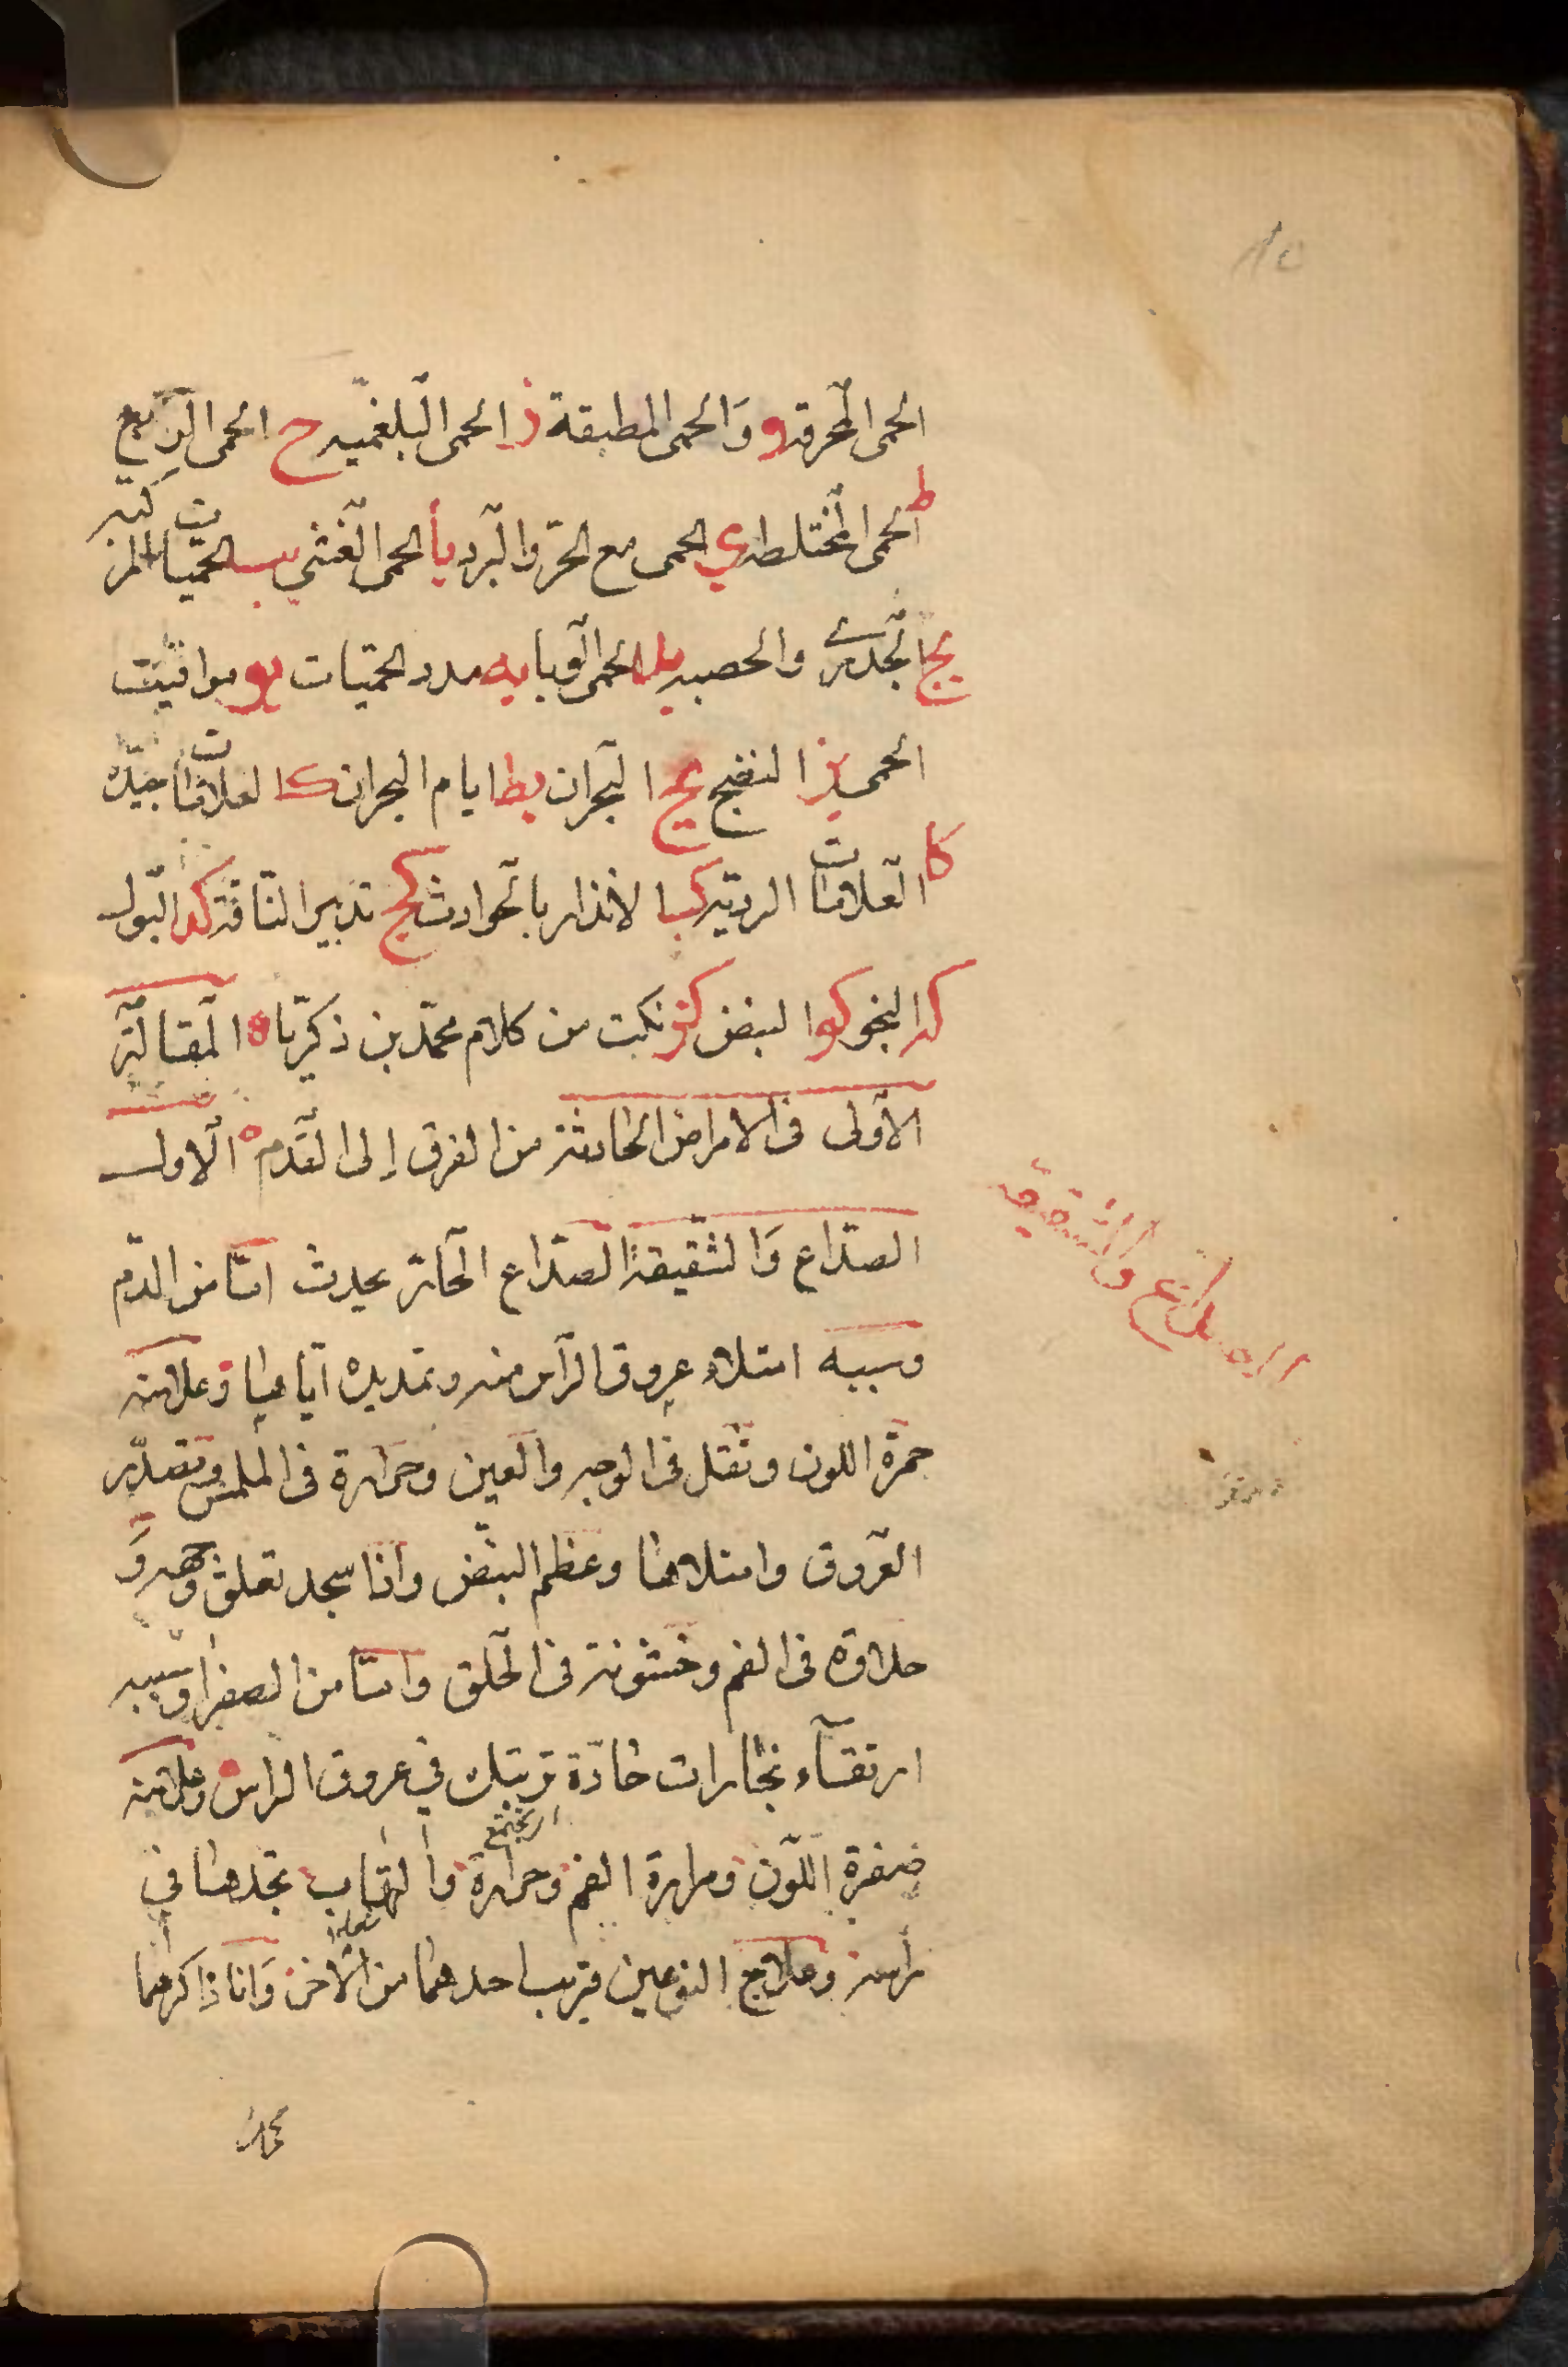 الحمى المحرقة و وَالحمى المطبقة ز الحمى البلغميه ح الحمى الربع
ط الحمى المختلطه ي الحمى مع الحرّ والبرد يا الحمى الغشي يب الحمّيات المركبه
يج الجدري والحصبه يد الحمى الوبايه يه مدد الحمّيات يو مواقيت
الحمى يز النضج يح البحران يط ايام البحران ك العلامات الجيّده
كا العلامات الرديّه كب الانذار بالحوادث كج تدبير النّاقه كد البول
كه النجو كو النبض كز نكت من كلام محمّد بن زكريّا ه المقالة
الأولى في الامراض الحادثة من الفرق إلى القدم ه الاول
الصدّاع وَالشقيقة الصدّاع الحادّ يحدث امّا من الدّم
وسببه امتلاء عروق الرأس منه وتمديده ايّاها وعلامته
حمرة اللون وثقل في الوجه والعين وحرارة في الملمس وتصدّر
العروق وامتلاها وعظم النبض واذا سجد ثقلت وجهه وَ
حلاوة في الفم وخشونة في الحلق وامّا من الصفراء وسببه
ارتقآء بخارات حادّة ترتبك في عروق الراس وعلامته
صفرة اللّون ومرارة الفم وحرارة والتهاب تجدها في
رأسه وعلاج النوعين قريب احدهما من الاخر وَانا ذاكرهما
الصداع والشقيقه